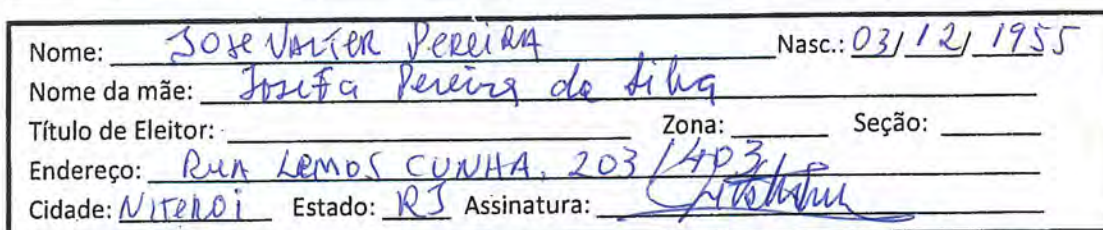 Nome: JOSE VALTER PEREIRA Nasc.: 03/12/1955
Nome da mãe: Josefa Pereira da Silva
Título de Eleitor: Zona: Seção:
Endereço: RUA LEMOS CUNHA, 203/403
Cidade: NITEROI Estado: RJ Assinatura: